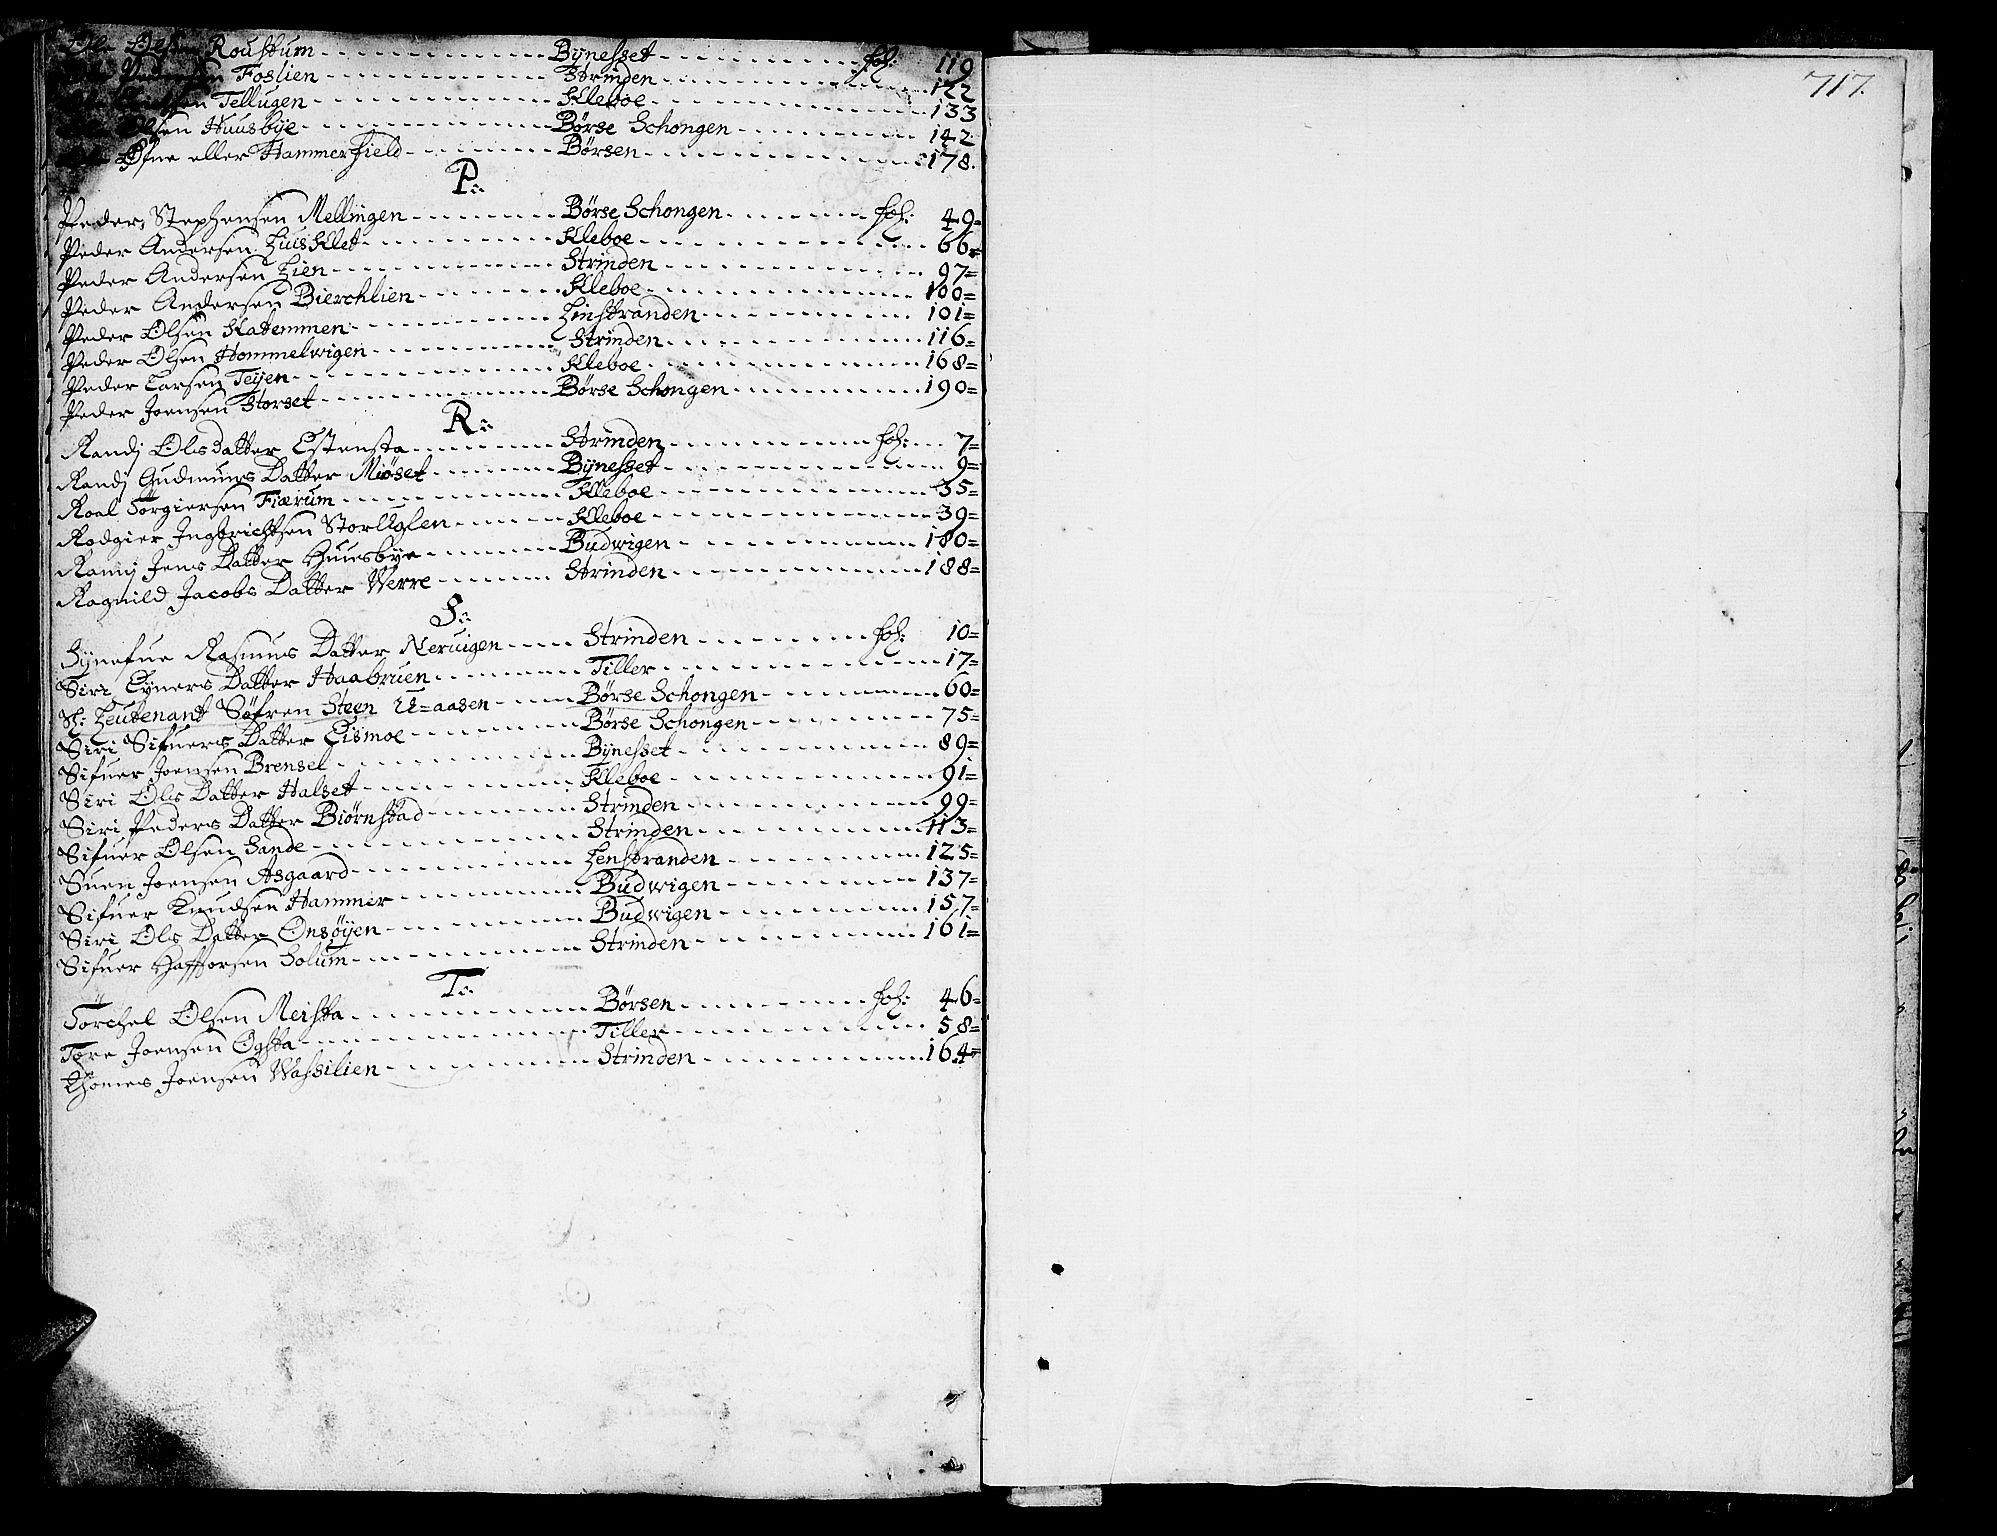 Ole Olsen Roustum Bÿnesset fol: 119
Ole Pedersen Foslien Strinden 122
Tellugen Kleboe 133
Ole Olsen Huusbÿe Børse Schongen 142
Ole Øfne eller Hammerfield Børsen 178.
P:
Peder Stephensen Mellingen Børse Schongen fol: 49=
Peder Andersen Liusklet Kleboe 66=
Peder Andersen Lien Strinden 97=
Peder Andersen Bierchlien Kleboe 100=
Peder Olsen Skatemmen Leinstranden 101=
Peder Olsen Hommelwigen Strinden 116=
Peder Larsen Teÿen Kleboe 168=
Peder Joensen Storset Børse Schongen 190=
R:
Randj Olsdatter Estensta Strinden fol: 7=
Randj Gudmuns Datter Miøset Bÿnesset 9=
Roal Torgiersen Fiærum Kleboe 35=
Rodgier Ingbrichtsen StorUglen Kleboe 39=
Ranij Jens Datter Huusbÿe Budwigen 180=
Ragnild Jacobs Datter Werre Strinden 188=
S:
Sÿnefue Rasmus Datter Neruigen Strinden fol: 10=
Siri Eyners Datter Haabruen Tiller 17=
Sl: Leutenant Søfren Steen U=aasen Børse Schongen 60=
Siri Sifuers Datter Eismoe Børse Schongen 75=
Sifuer Joensen Brensel Bÿnesset 89=
Siri Ols Datter Halset Kleboe 91=
Siri Peders Datter Biørnstad Strinden 99=
Sifuer Olsen Sande Strinden 113=
Suen Joensen Asgaard Lenstranden 125=
Sifuer Knudsen Hammer Budwigen 137=
Siri Ols Datter Onsøÿen Budwigen 157=
Sifuer Haffforsen Solum Strinden 161=
T:
Torchel Olsen Meista Børsen fol: 46=
Tore Joensen Ogsta Tiller 58=
Thomes Joensen Wassilien Strinden 164=
717.